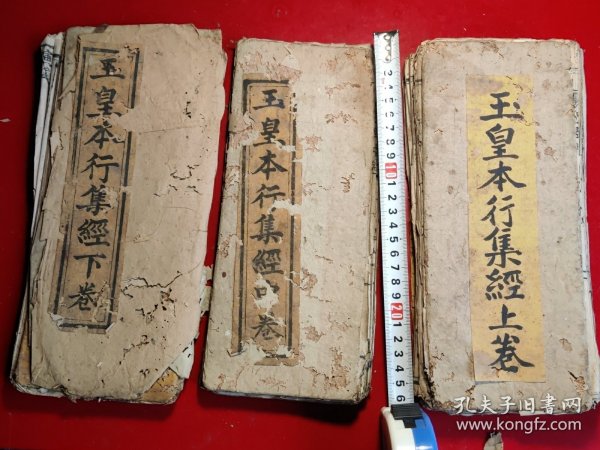 玉皇本行集經下卷
玉皇本行集經中卷
玉皇本行集經上卷
1 2 3 4 5 6 7 8 9 10 1 2 3 4 5 6 7 8 9 20 1 2 3 4 5 6
孔夫子旧书网
www.kongfz.com